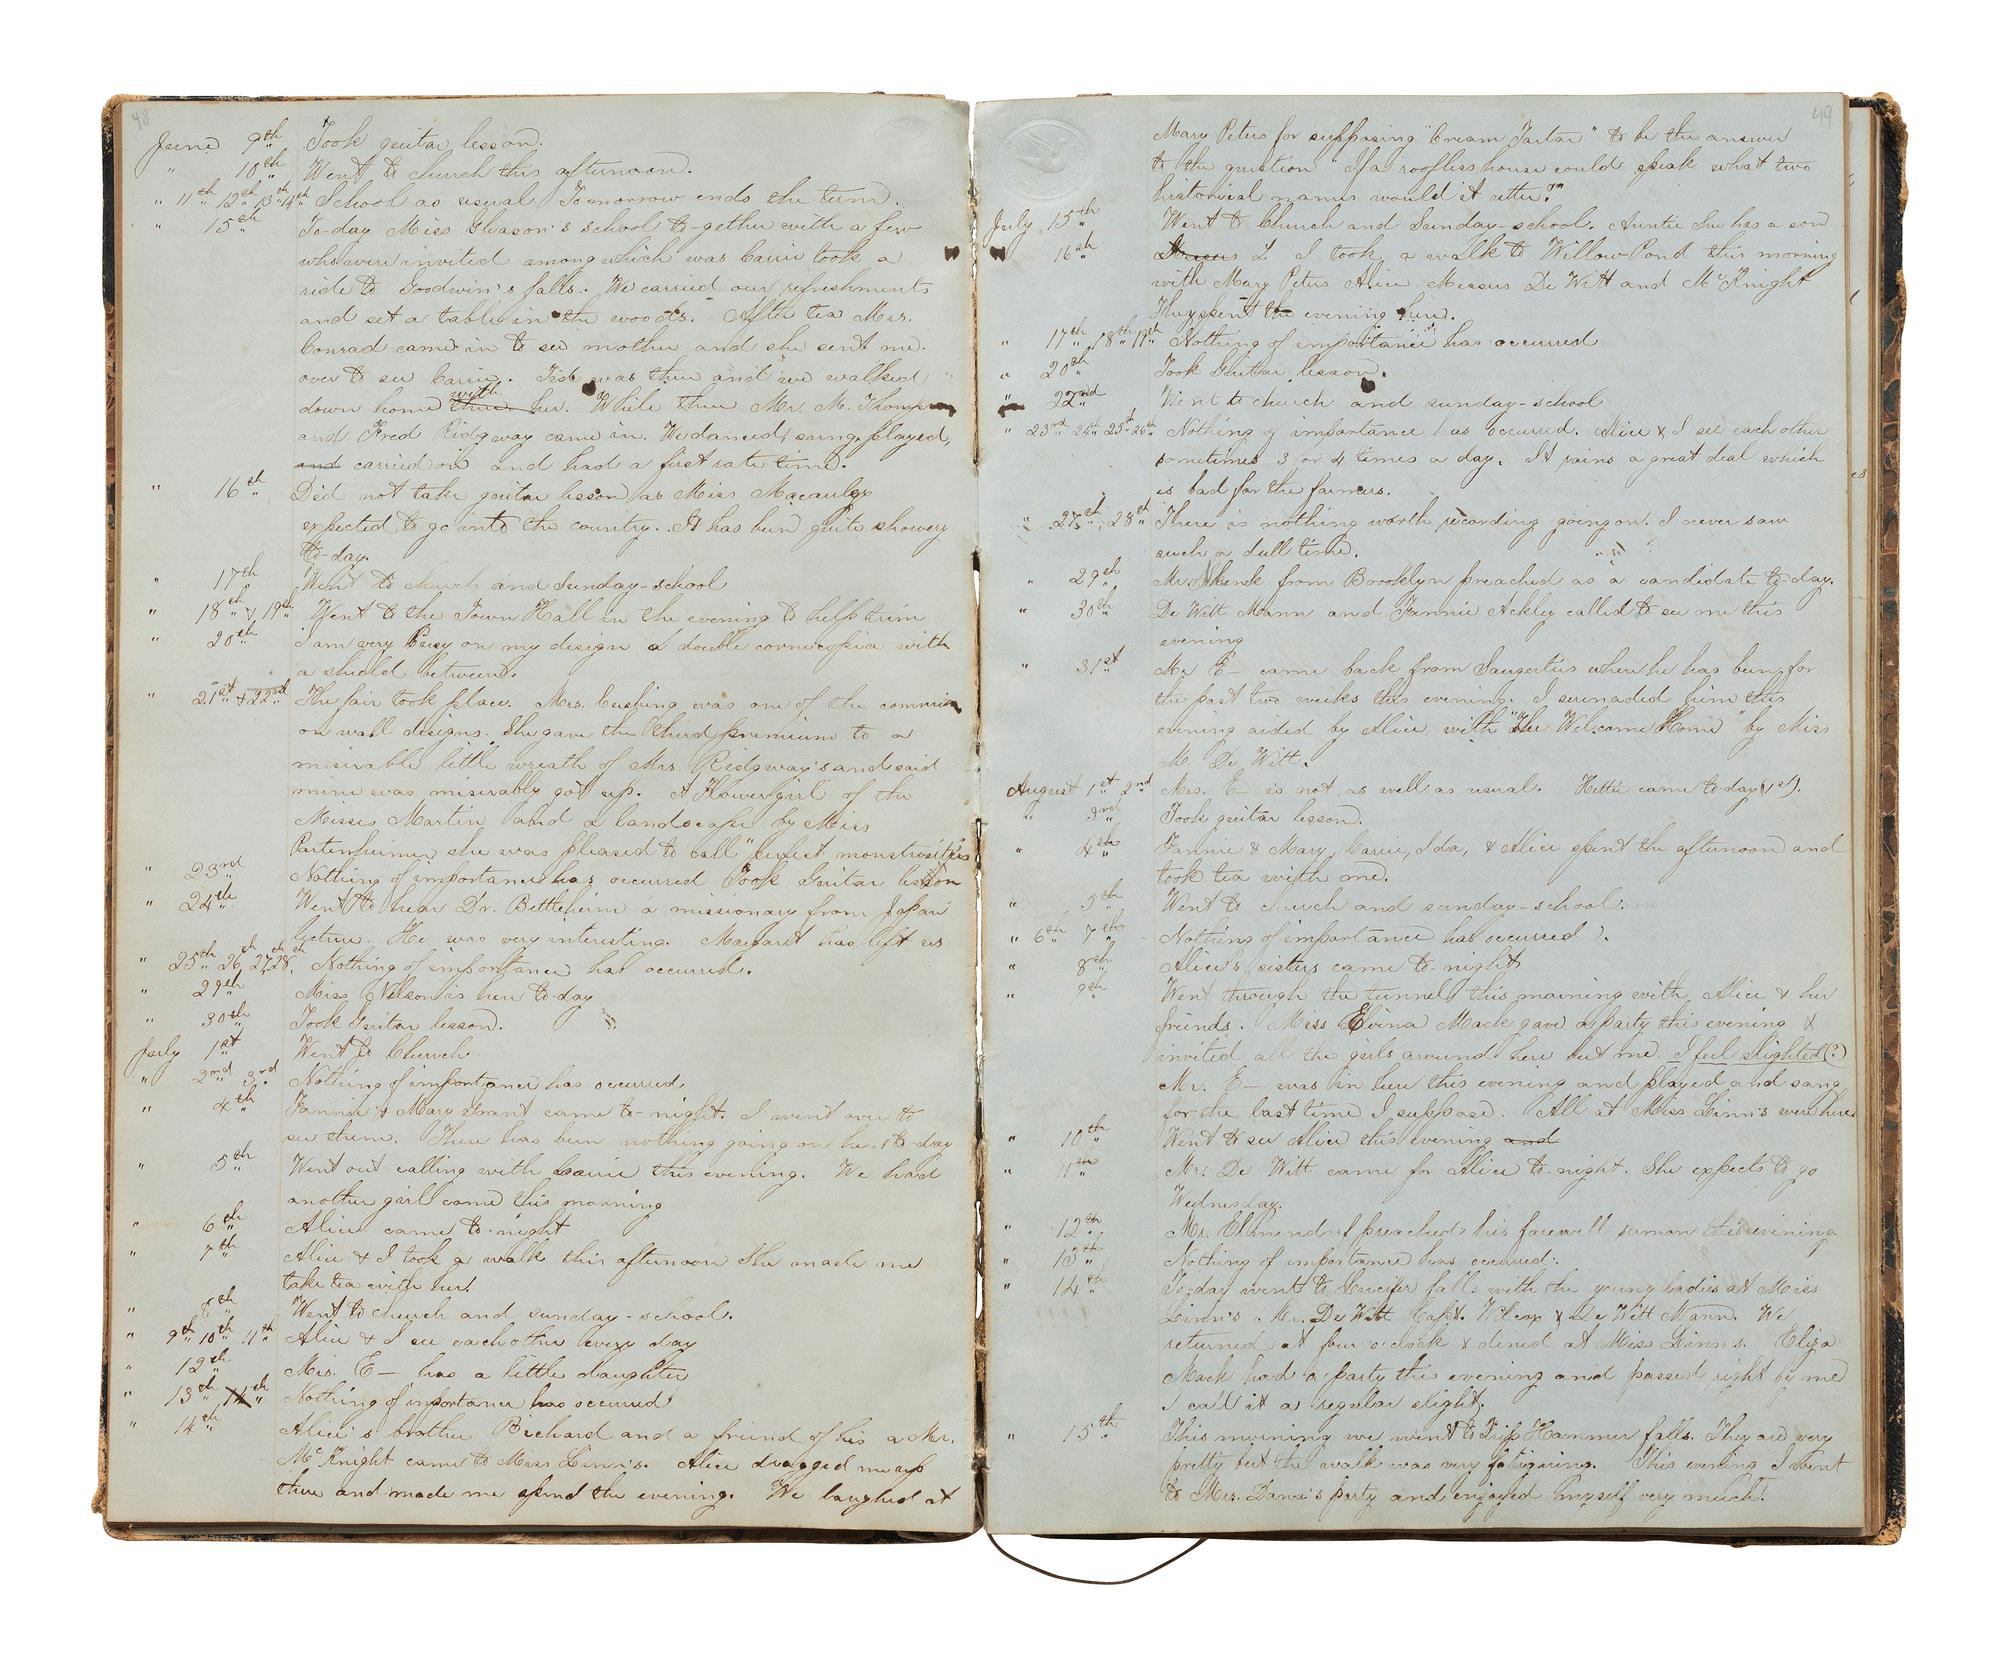 48
June 9th Took guitar lesson.
" 10th Went to church this afternoon.
" 11th 12th 13th 14th School as usual Tomorrow ends the term.
" 15th To-day Miss Gleason's school to-gether with a few
who were invited among which was Carrie took a
ride to Goodwin's falls. We carried our refreshments
and set a table in the woods. After tea Mrs.
Conrad came in to see mother and she sent me
over to see Carrie. was there and we walked
down home with her. While there Mr. M. Thompson
and Fred Ridgway came in. We danced, sung, played,
and carried on and had a first rate time.
" 16th Did not take guitar lesson as Miss Macauley
expected to go into the country. It has been quite showery
to-day.
" 17th Went to church and Sunday-school
" 18th & 19th Went to the Town Hall in the evening to help trim
" 20th I am very busy on my design a double cornucopia with
a shield between.
" 21st & 22nd The fair took place. Mrs. Cushing was one of the
on wall designs. She gave the third premium to a
miserable little wreath of Mrs. Ridgway's and said
mine was miserably got up. A Flower girl of the
Misses Martin and a landscape by Miss
Partenheimer she was pleased to call "perfect monstrosities"
" 23rd Nothing of importance has occurred Took Guitar lesson
" 24th Went to hear Dr. Bettleheim a missionary from Japan
lecture. He was very interesting. Margaret has left us
" 25th 26th 27th 28th Nothing of importance has occurred.
" 29th Miss Nelson is here to-day
" 30th Took Guitar lesson.
July 1st Went to Church
" 2nd 3rd Nothing of importance has occurred
" 4th Fannie & Mary Grant came to-night. I went over to
see them. There has been nothing going on here to-day
" 5th Went out calling with Carrie this evening. We had
another girl come this morning
" 6th Alice came to-night
" 7th Alice & I took a walk this afternoon She made me
take tea with her.
" 8th Went to church and sunday-school.
" 9th 10th 11th Alice & I see each other every day
" 12th Mrs. E— has a little daughter
" 13th 14th Nothing of importance has occurred
" 14th Alice's brother Richard and a friend of his a Mr.
McKnight came to Miss Linn's. Alice dragged me up
there and made me spend the evening. We laughed at
49
Mary Peters for supposing "Cream Tartar" to be the answer
to the question "If a roofless house could speak what two
historical names would it utter?"
July 15th Went to Church and Sunday-school. Auntie Sue has a son
" 16th L I took a walk to Willow Pond this morning
with Mary Peters Alice Messrs De Witt and McKnight
They spent the evening here.
" 17th 18th 19th Nothing of importance has occurred
" 20th Took Guitar lesson.
" 22nd Went to church and sunday-school
" 23rd 24th 25th 26th Nothing of importance has occurred. Alice & I see each other
sometimes 3 or 4 times a day. It rains a great deal which
is bad for the farmers.
" 27th, 28th There is nothing worth recording going on. I never saw
such a dull time.
" 29th Mr. Schenck from Brooklyn preached as a candidate to-day.
" 30th De Witt Mann and Fannie Ackley called to see me this
evening
" 31st Mr E— came back from Saugerties where he has been for
the past two weeks this evening. I serenaded him this
evening aided by Alice, with "The Welcome Home" by Miss
M. De Witt.
August 1st 2nd Mrs. E— is not as well as usual. Hettie came to-day (1st).
" 3rd Took guitar lesson.
" 4th Fannie & Mary, Carrie, Ida, & Alice spent the afternoon and
took tea with me.
" 5th Went to church and sunday-school.
" 6th 7th Nothing of importance has occurred.
" 8th Alice's sisters came to-night
" 9th Went through the tunnel this morning with Alice & her
friends. Miss Elvina Mack gave a party this evening &
invited all the girls around here but me. I feel slighted(?)
Mr. E— was in here this evening and played and sang
for the last time I suppose. All at Miss Linn's were here
" 10th Went to see Alice this evening and
" 11th Mr. De Witt came for Alice to-night. She expects to go
Wednesday.
" 12th Mr. Elmendorf preached his farewell sermon this evening.
" 13th Nothing of importance has occurred.
" 14th To-day went to Lucifer falls with the young ladies at Miss
Linn's Mr. De Witt Capt. Wilcox & De Witt Mann. We
returned at four o'clock & dined at Miss Linn's. Eliza
Mack had a party this evening and passed right by me
I call it a regular slight.
" 15th This morning we went to Trip Hammer falls. They are very
pretty but the walk was very fatiguing. This evening I went
to Mrs. Dana's party and enjoyed myself very much!